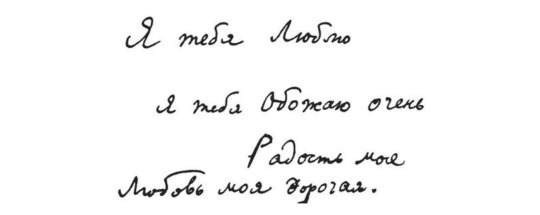 Я тебя Люблю
я тебя Обожаю очень
Радость мое
Любовь моя дорогая.